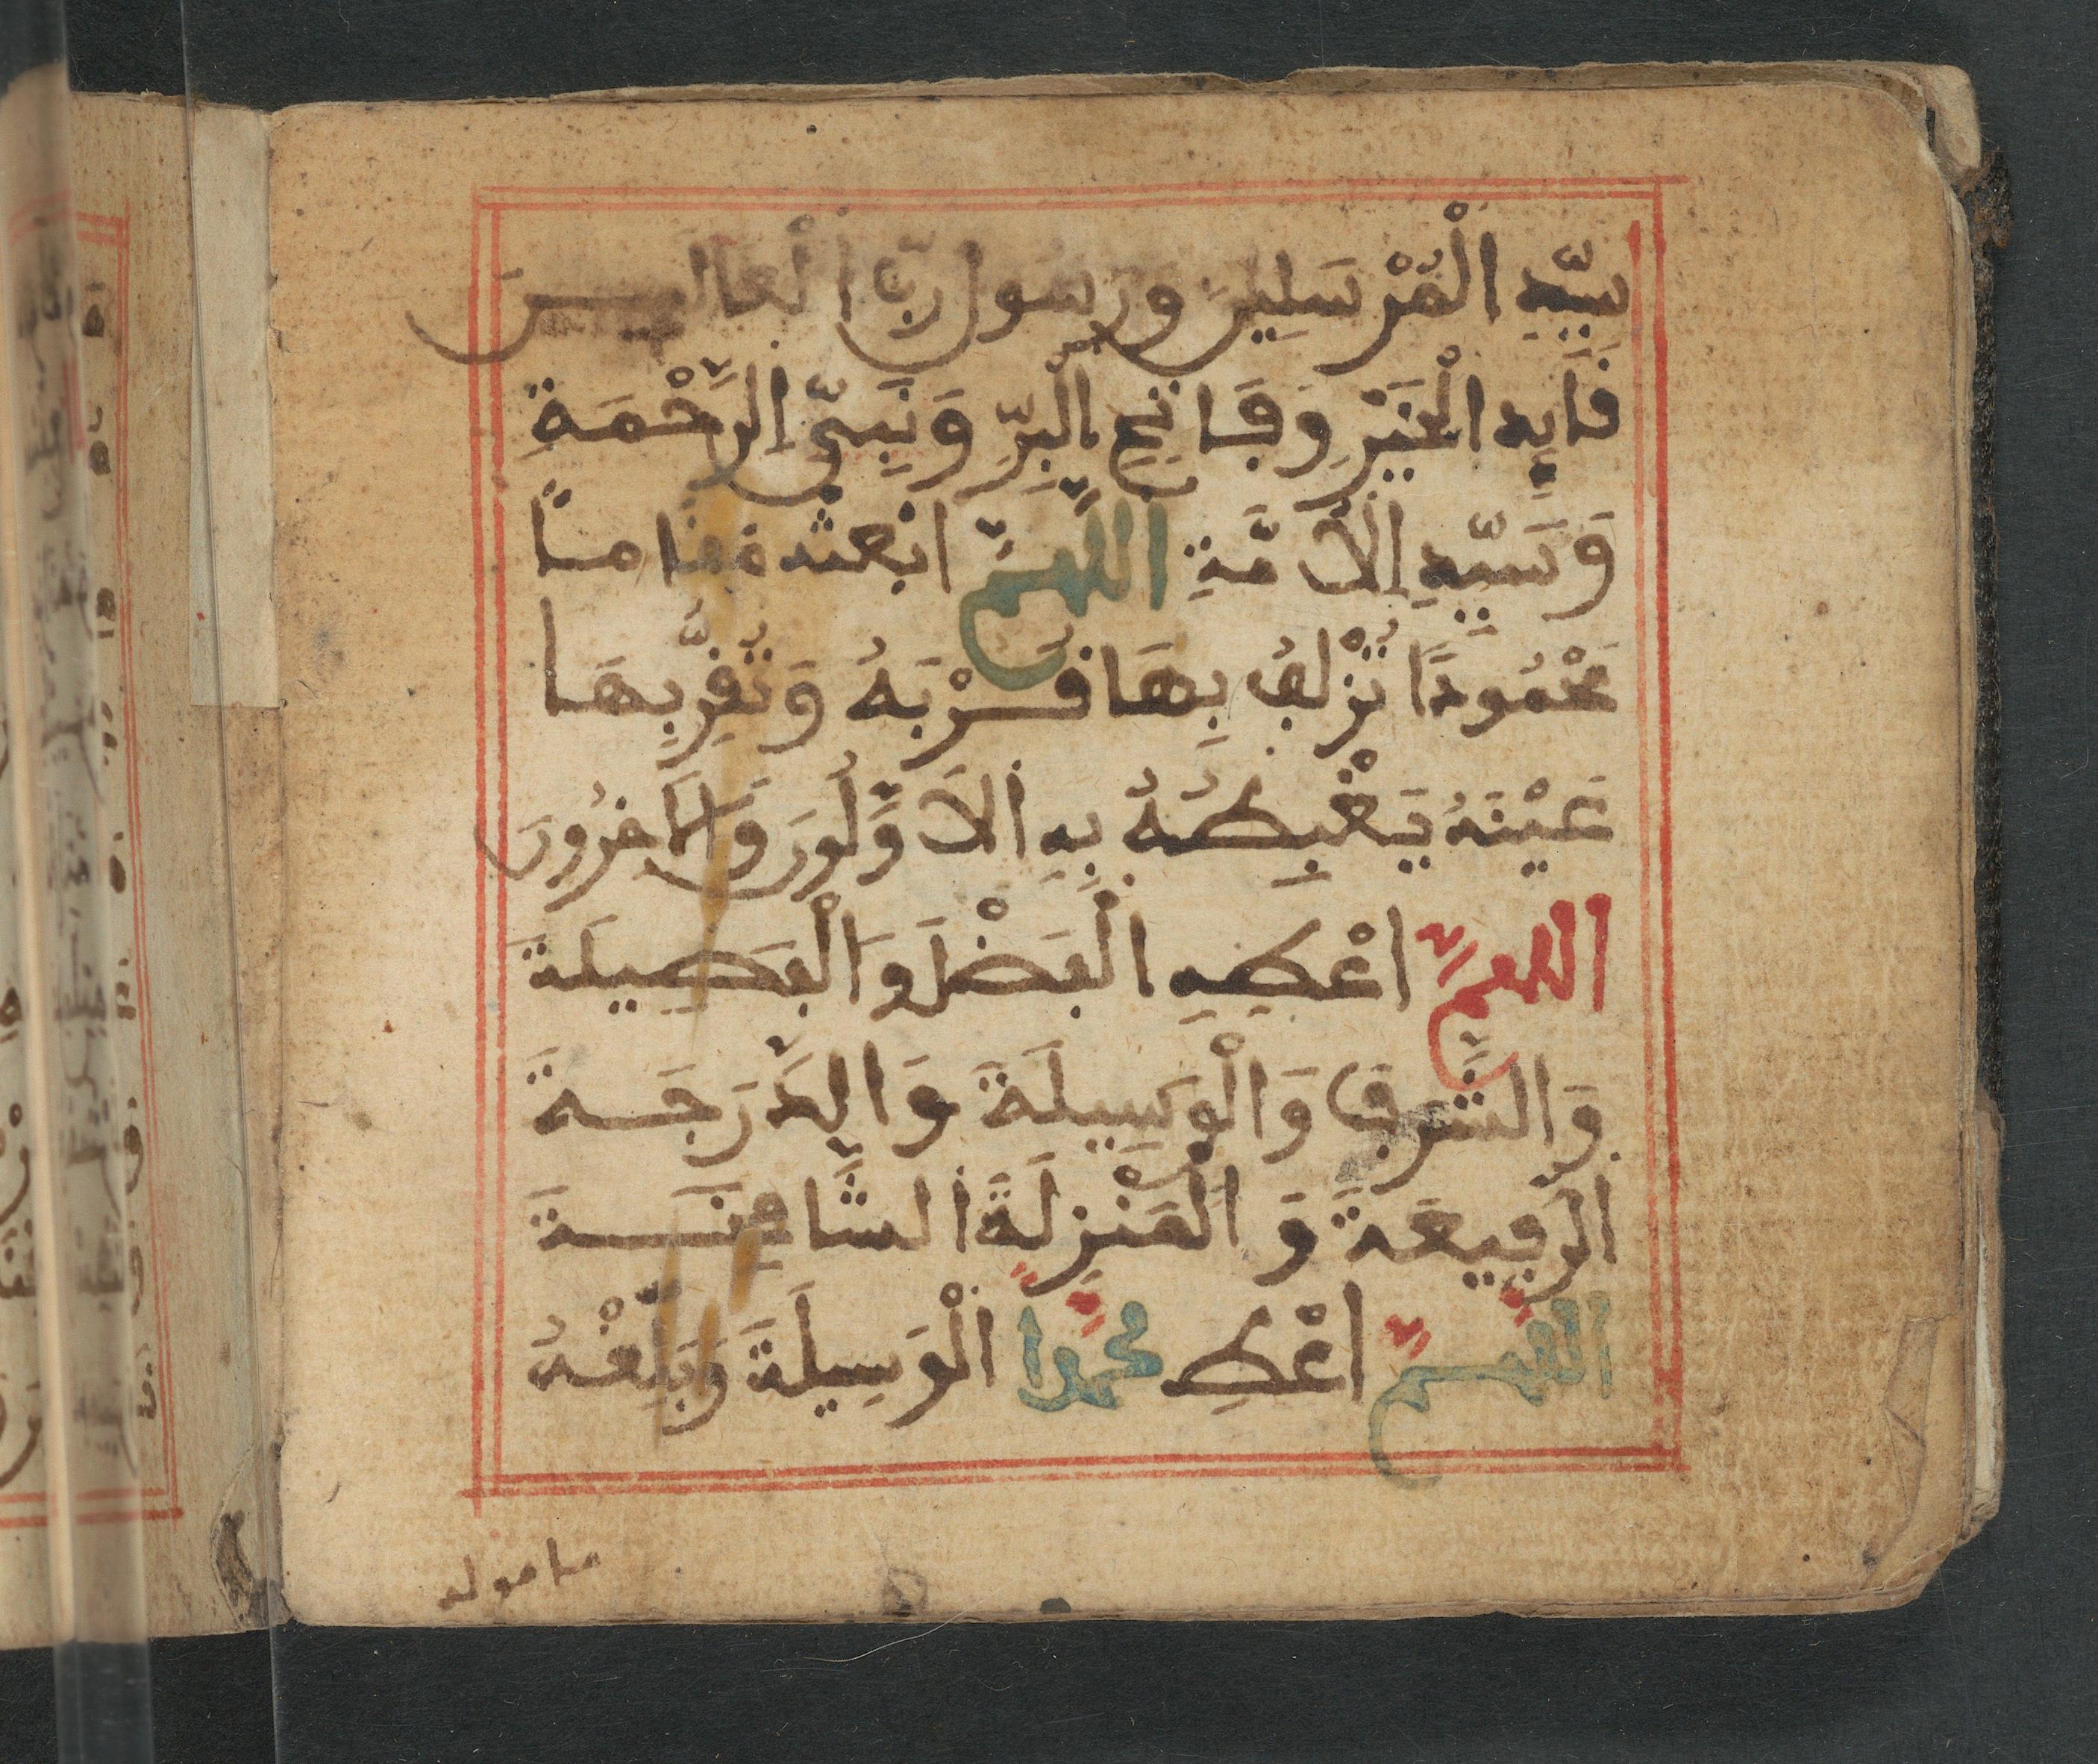 سيِّدِ الْمُرْسَلِينَ وَرَسُولِ رَبِّ الْعَالَمِينَ
قَآيِدِ الْخَيْرِ وَفَاتِحِ الْبِرِّ وَنَبِيِّ الرَّحْمَةِ
وَسَيِّدِ الْأُمَّةِ اللَّهُمَّ ابْعَثْهُ مَقَامًا
مَحْمُودًا تُزْلِفُ بِهَا قُرْبَهُ وَتُقِرُّ بِهَا
عَيْنَهُ يَغْبِطُهُ بِهِ الْأَوَّلُونَ وَالْآخِرُونَ
اللَّهُمَّ اعْطِهِ الْفَضْلَ وَالْفَضِيلَةَ
وَالشَّرَفَ وَالْوَسِيلَةَ وَالدَّرَجَةَ
الرَّفِيعَةَ وَالْمَنْزِلَةَ الشَّامِخَةَ
اللَّهُمَّ اعْطِ مُحَمَّدًا الْوَسِيلَةَ وَبَلِّغْهُ
ماموله